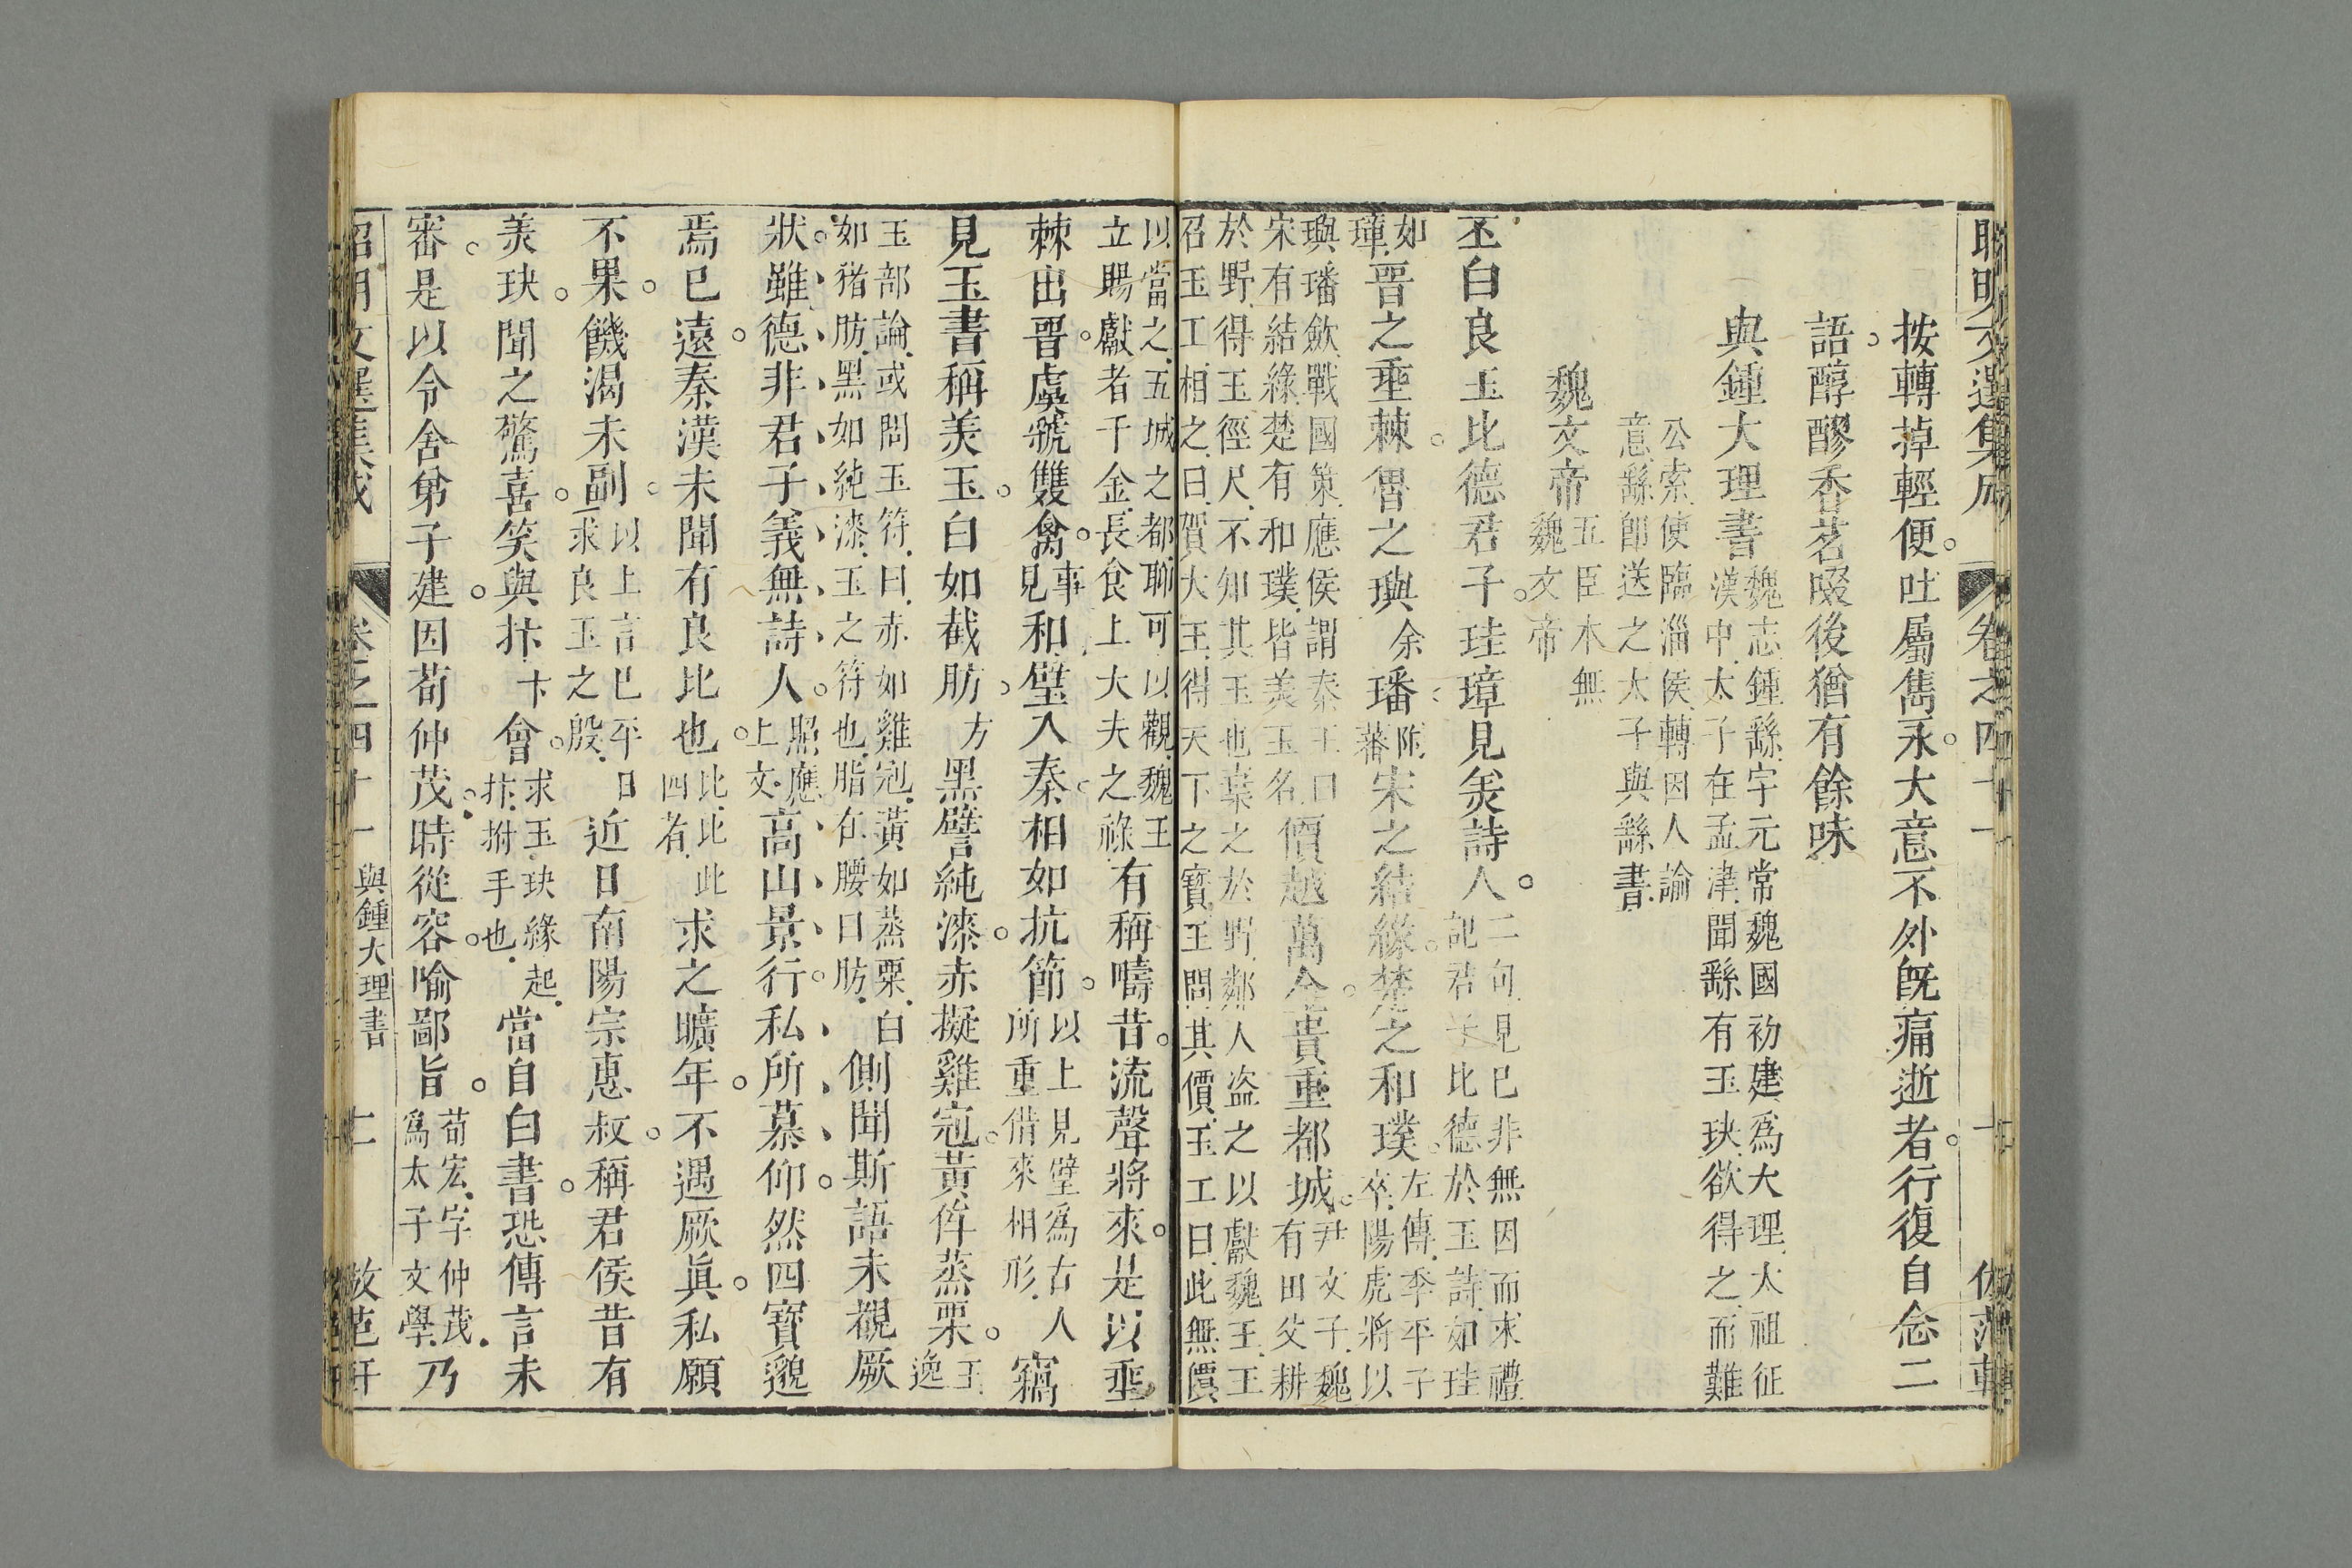 昭明文選集成　卷之四十一　十　倣范軒
按轉掉輕便。吐屬雋永。大意不外旣痛逝者。行復自念二
語。醇醪香茗啜後猶有餘味
與鍾大理書 魏志鍾繇字元常魏國初建爲大理太祖征漢中太子在孟津聞繇有玉玦欲得之而難
公索使臨淄侯轉因人諭意繇卽送之太子與繇書
魏文帝 五臣本無魏文帝
丕白良玉比德君子。珪璋見羙詩人。二句見已非無因而求禮記君子比德於玉詩如珪
如璋晋之垂棘。魯之璵余璠附蕃宋之結綠。楚之和璞。左傳季平子卒陽虎將以
璵璠歛戰國策應侯謂秦王曰宋有結綠楚有和璞皆美玉名價越萬金。貴重都城。尹文子魏有田父耕
於野得玉徑尺不知其玉也棄之於野鄰人盗之以獻魏王王召玉工相之曰賀大王得天下之寶王問其價玉工曰此無價
以當之五城之都聊可以觀魏王立賜獻者千金長食上大夫之祿有稱疇昔。流聲將來。是以垂
棘出晋。虞虢雙禽。事見和璧入秦。相如抗節。以上見璧爲古人所重借來相形竊
見玉書稱羙玉。白如截肪。方黑譬純漆。赤擬雞冠。黃侔蒸栗。王逸
玉部論或問玉符曰赤如雞冠黃如蒸栗白如豬肪黑如純漆玉之符也脂在腰曰肪側聞斯語未覩厥
狀。雖德非君子義無詩人。照應上文高山景行。私所慕仰。然四寶邈
焉已遠。秦漢未聞有良比也。比比此四者求之曠年。不遇厥眞。私願
不果。饑渴未副。以上言已平日求良玉之殷近日南陽宗惠叔。稱君侯昔有
羙玦。聞之驚喜。笑與抃卞會。求玉玦緣起抃拊手也當自白書。恐傳言未
審。是以令舍弟子建。因荀仲茂。時從容。喻鄙旨。荀宏字仲茂爲太子文學乃
昭明文選集成　卷之四十一　與鍾大理書　十一　倣范軒